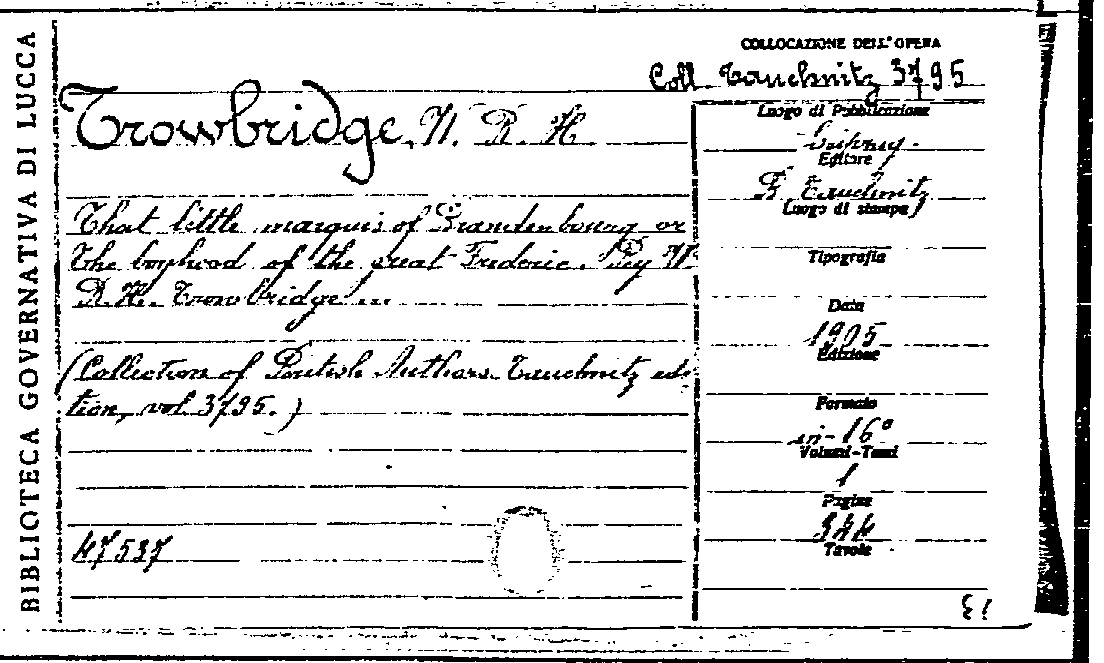 BIBLIOTECA GOVERNATIVA DI LUCCA
COLLOCAZIONE DELL'OPERA
Coll. Tauchnitz 3795
Trowbridge, W. R. H.
That little marquis of Brandenbourg or
the boyhood of the great Frederic. By W.
R. H. Trowbridge...
(Collection of British Authors. Tauchnitz edi-
tion, vol. 3795.)
47537
Luogo di Pubblicazione
Leipzig.
Editore
B. Tauchnitz
Luogo di stampa
Tipografia
Data
1905
Edizione
Formato
in-16°
Volumi-Tomi
1
Pagine
344
Tavole